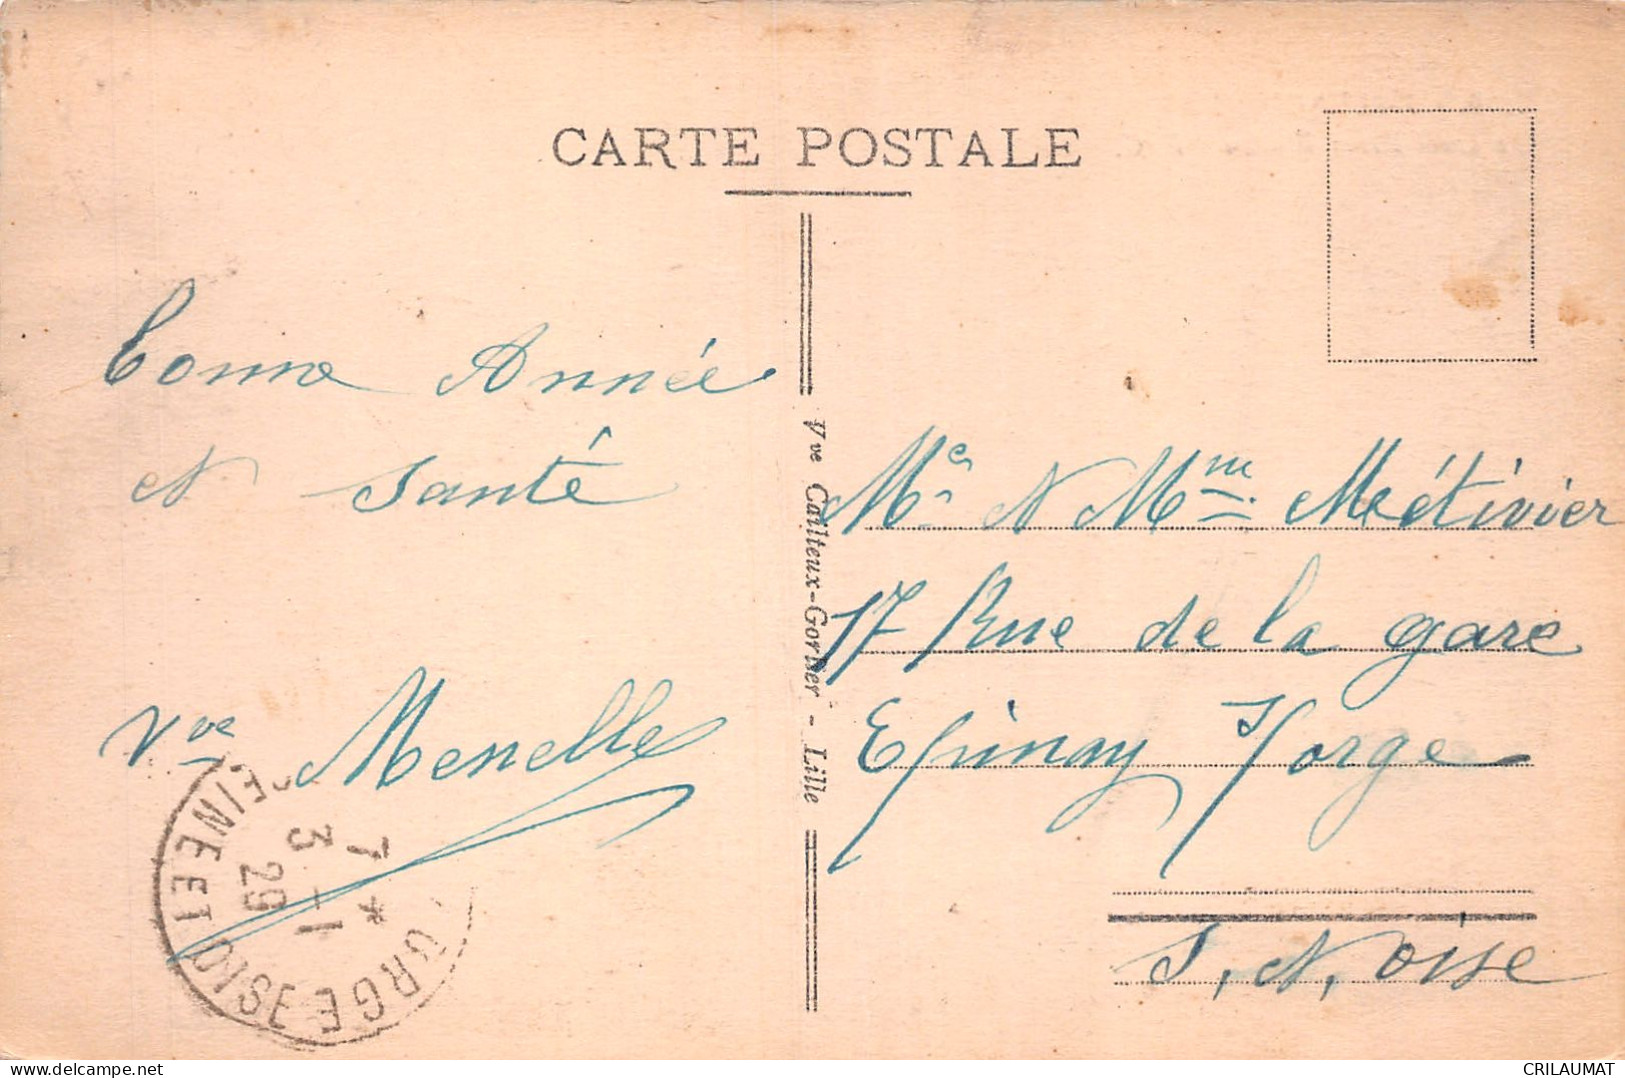 CARTE POSTALE
bonne Année
et Santé
Vve Menelle
Vve Cailteux-Gorlier - Lille
Mr et Mme Métivier
17 Rue de la gare
Epinay S/orge
S. et. oise
7 *
3 - 1
29
ORGE
SEINE ET OISE
www.delcampe.net
CRILAUMAT